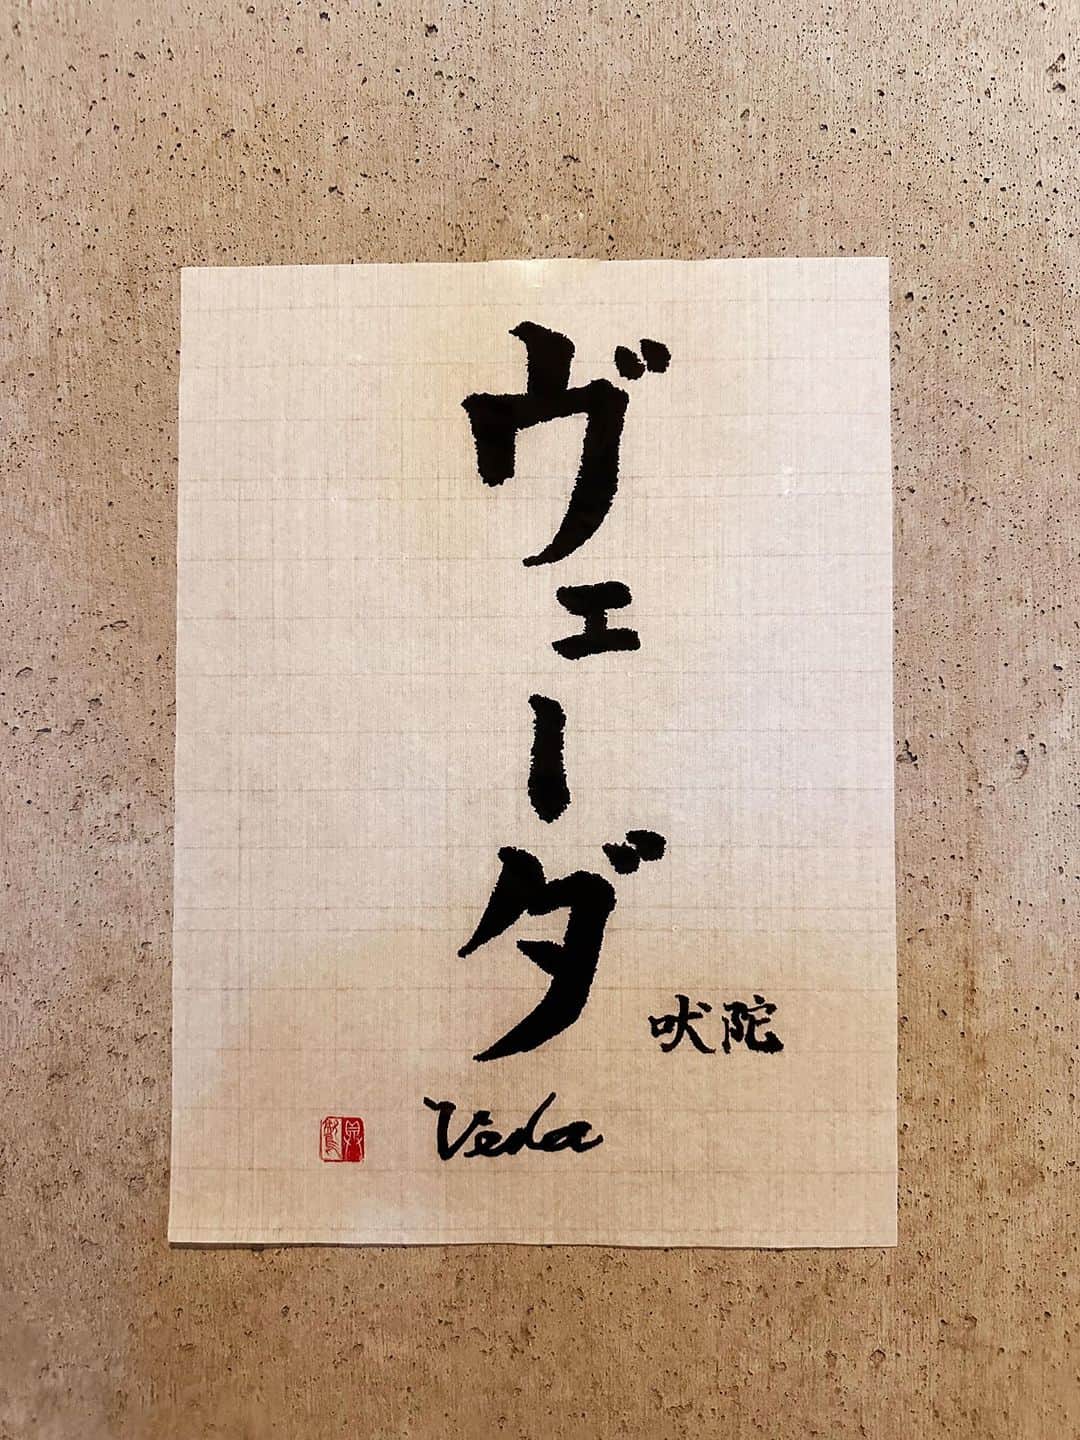 ヴェーダ
吠陀
Veda